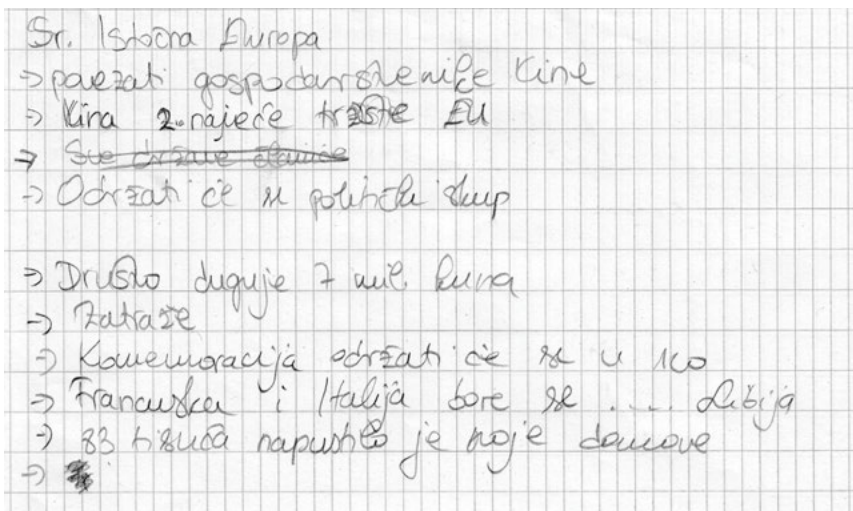 Sr. Istočna Europa
→ povezati gospodarstvenike Kine
→ Kina 2. najeće tržište EU
→ Sve države članice
→ Održati će se politički skup
→ Društo duguje 7 mil. kuna
→ Zatraže
→ Komemoracija održati će se u 100
→ Francuska i Italija bore se .... Libija
→ 83 tisuća napustilo je svoje domove
→